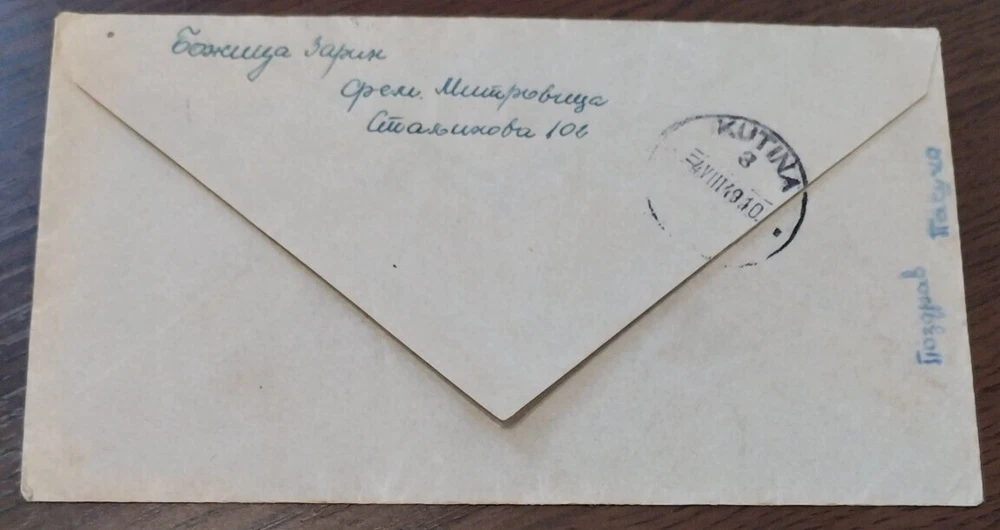 Божица Зарин
Срем. Митровица
Стаљинова 106
KUTINA
3
-4.VIII.49.10.
Поздрав